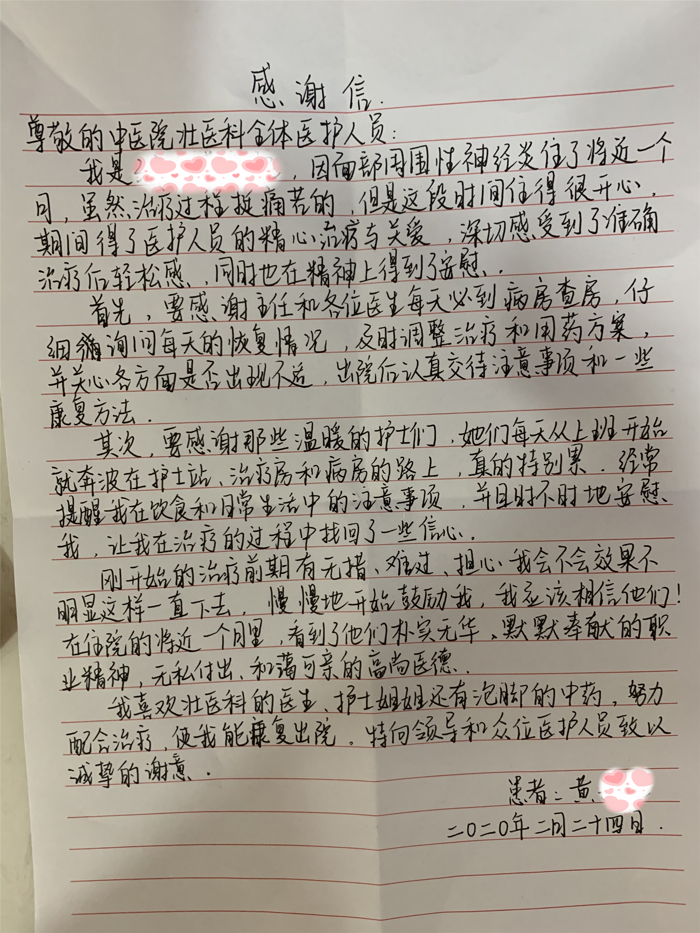 感谢信.
尊敬的中医院壮医科全体医护人员:
我是 ,因面部周围性神经炎住了将近一个
月,虽然治疗过程挺痛苦的,但是这段时间住得很开心.
期间得了医护人员的精心治疗与关爱,深切感受到了准确
治疗后轻松感、同时也在精神上得到了安慰.
首先,要感谢主任和各位医生每天必到病房查房,仔
细 询问每天的恢复情况,及时调整治疗和用药方案,
并关心各方面是否出现不适,出院后认真交待注意事项和一些
康复方法.
其次,要感谢那些温暖的护士们,她们每天从上班开始
就奔波在护士站、治疗房和病房的路上,真的特别累.经常
提醒我在饮食和日常生活中的注意事项,并且时不时地安慰
我,让我在治疗的过程中找回了一些信心.
刚开始的治疗前期有无措、难过、担心我会不会效果不
明显这样一直下去,慢慢地开始鼓励我,我应该相信他们!
在住院的将近一个月里,看到了他们朴实无华、默默奉献的职
业精神,无私付出、和蔼可亲的高尚医德.
我喜欢壮医科的医生、护士姐姐还有泡脚的中药,努力
配合治疗,使我能康复出院.特向领导和众位医护人员致以
诚挚的谢意.
患者:黄
二〇二〇年二月二十四日.